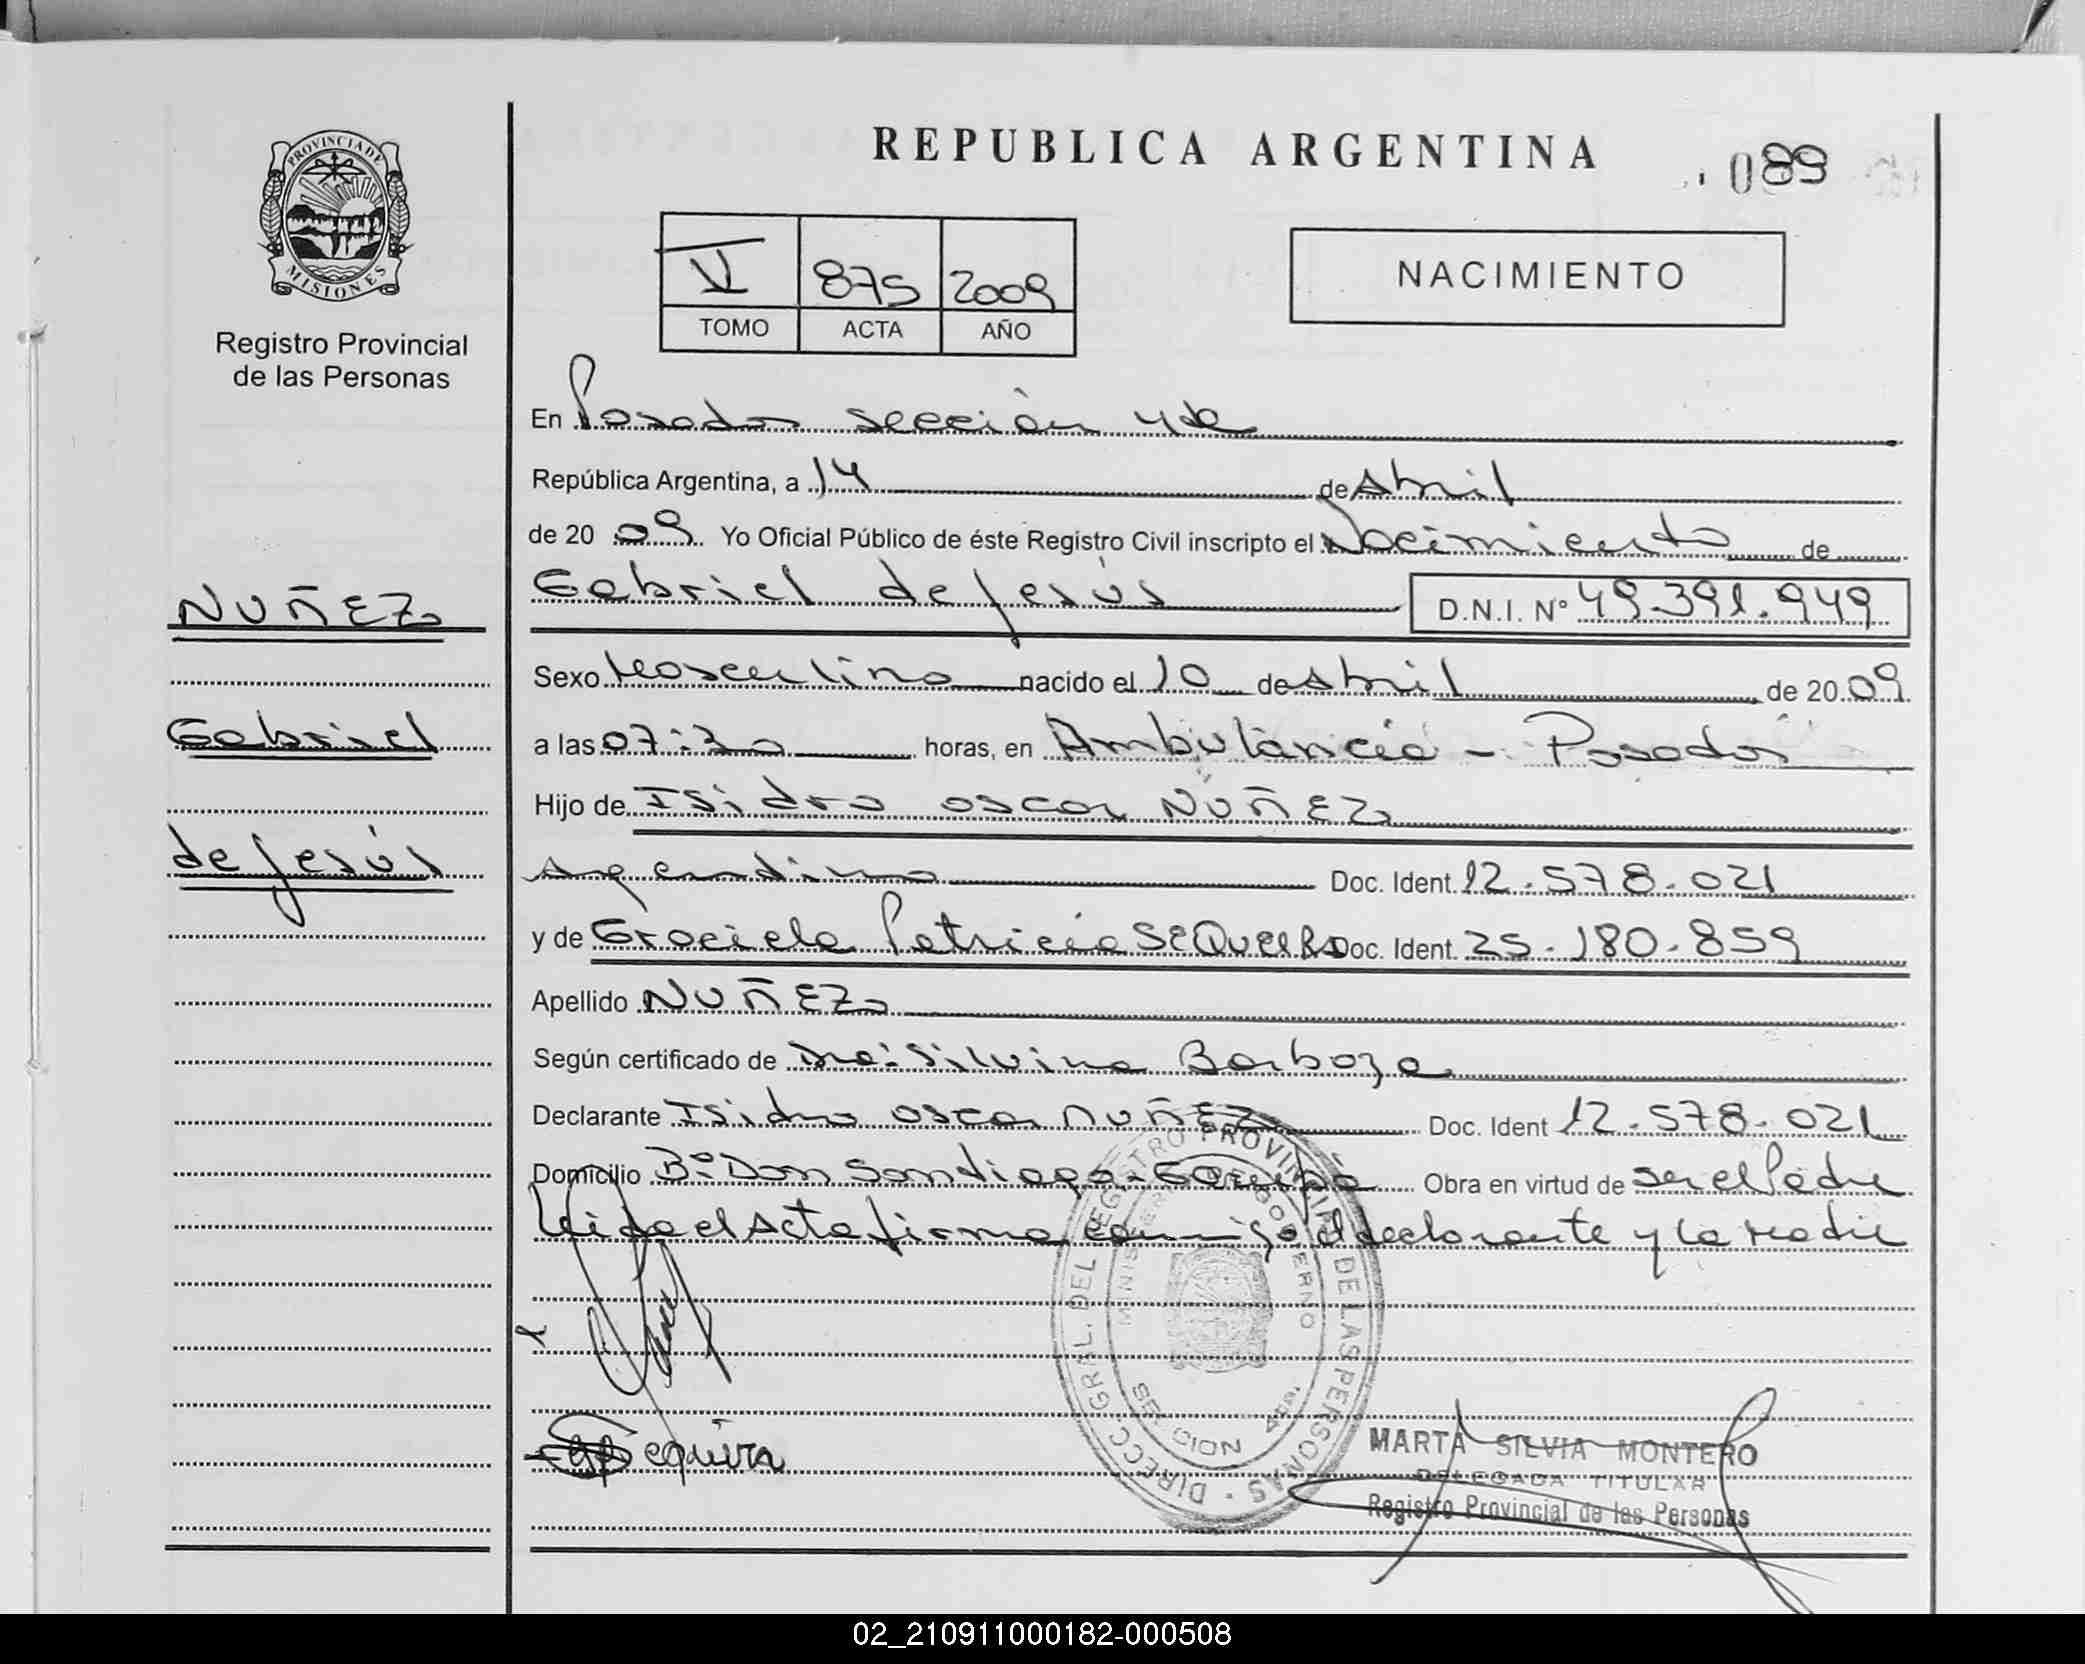 REPUBLICA ARGENTINA
089
PROVINCIA DE
MISIONES
Registro Provincial
de las Personas
V 875 2009
TOMO ACTA AÑO
NACIMIENTO
En Posadas sección 4ta
República Argentina, a 14 de Abril
de 20 09 Yo Oficial Público de éste Registro Civil inscripto el Nacimiento de
Gabriel de Jesús D.N.I. Nº 49.391.949
NUÑEZ
Gabriel
de Jesús
Sexo Masculino nacido el 10 de Abril de 20 09
a las 07:30 horas, en Ambulancia - Posadas
Hijo de Isidro Oscar NUÑEZ
Argentino Doc. Ident. 12.578.021
y de Graciela Patricia SEQUEIRA Doc. Ident. 25.180.859
Apellido NUÑEZ
Según certificado de Silvina Barboza
Declarante Isidro Oscar NUÑEZ Doc. Ident 12.578.021
Domicilio Bº Don Santiago - Garupá Obra en virtud de ser el Padre
Leida el Acta firma conmigo el declarante y la Madre
Sequeira
DIRECC. GRAL. DEL REGISTRO PROVINCIAL DE LAS PERSONAS
MINISTERIO DE GOBIERNO
SECCION 4ta
MARTA SILVIA MONTERO
DELEGADA TITULAR
Registro Provincial de las Personas
02_210911000182-000508